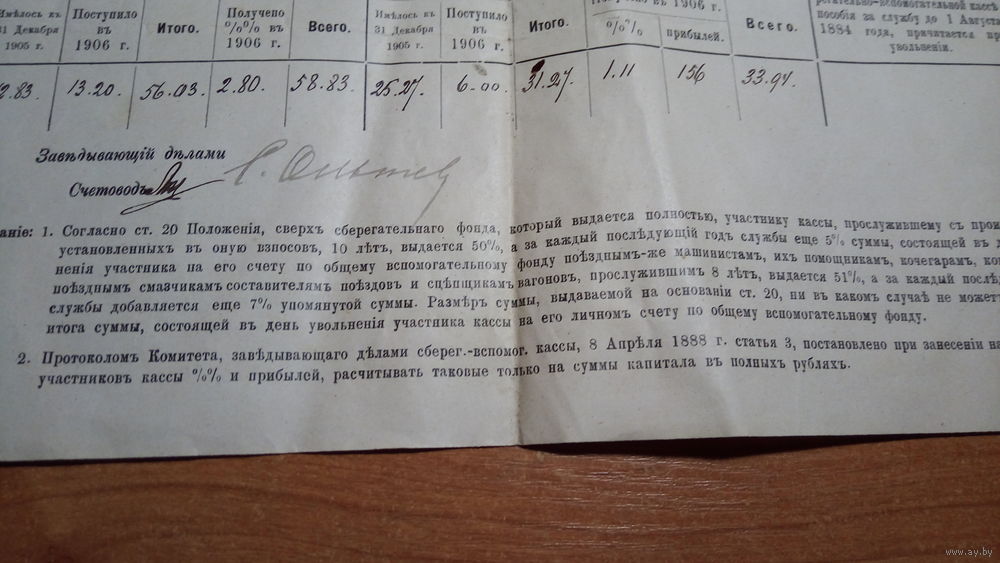 Имѣлось къ Поступило Получено Имѣлось къ Поступило въ 1906 г.
31 Декабря въ Итого. %% въ Всего. 31 Декабря въ Итого. %% прибылей. Всего.
1905 г. 1906 г. 1906 г. 1905 г. 1906 г.
-вспомогательной кассѣ
пособія за службу до 1 Августа
1884 года, причитается при
увольненіи.
2.83. 13.20. 56.03. 2.80. 58.83. 25.27. 6.00. 31.27. 1.11 156 33.94.
Завѣдывающій дѣлами
Счетоводъ
аніе: 1. Согласно ст. 20 Положенія, сверхъ сберегательнаго фонда, который выдается полностью, участнику кассы, прослужившему съ
установленныхъ въ оную взносовъ, 10 лѣтъ, выдается 50%, а за каждый послѣдующій годъ службы еще 5% суммы, состоящей въ
ненія участника на его счету по общему вспомогательному фонду поѣзднымъ-же машинистамъ, ихъ помощникамъ, кочегарамъ,
поѣзднымъ смазчикамъ составителямъ поѣздовъ и сцѣпщикамъ вагоновъ, прослужившимъ 8 лѣтъ, выдается 51%, а за каждый
службы добавляется еще 7% упомянутой суммы. Размѣръ суммы, выдаваемой на основаніи ст. 20, ни въ какомъ случаѣ не можетъ
итога суммы, состоящей въ день увольненія участника кассы на его личномъ счету по общему вспомогательному фонду.
2. Протоколомъ Комитета, завѣдывающаго дѣлами сберег.-вспомог. кассы, 8 Апрѣля 1888 г. статья 3, постановлено при занесеніи на
участниковъ кассы %% и прибылей, расчитывать таковые только на суммы капитала въ полныхъ рубляхъ.
www.ay.by